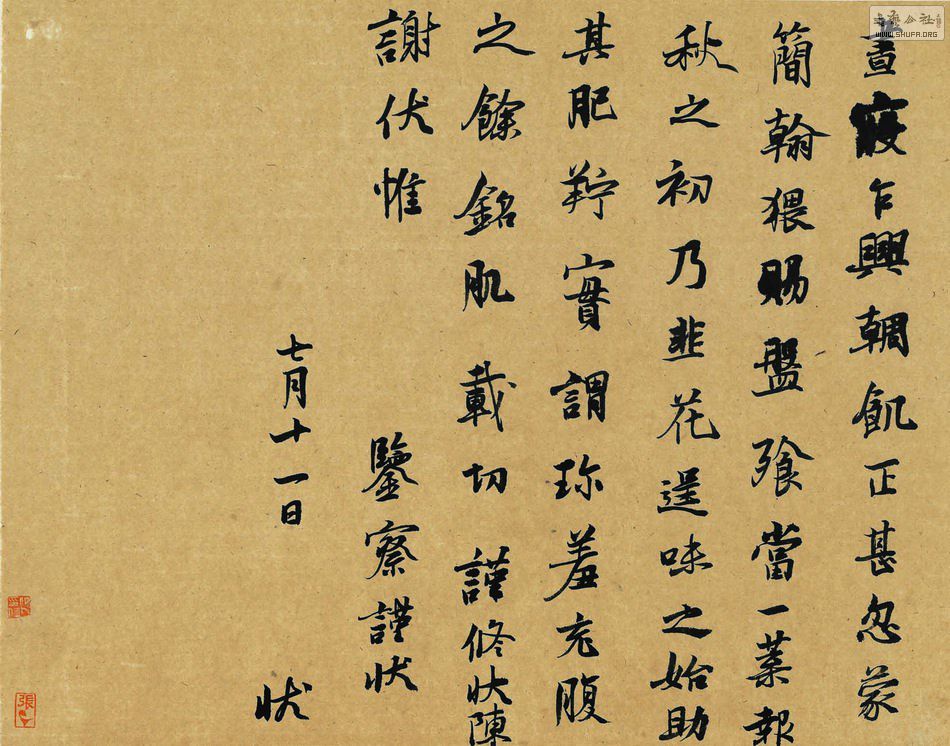 晝寢乍興輖飢正甚忽蒙
簡翰猥賜盤飧當一葉報
秋之初乃韭花逞味之始助
其肥羜實謂珎羞充腹
之餘銘肌載切謹修狀陳
謝伏惟
鑒察謹狀
七月十一日
狀
WWW.SHUFA.ORG